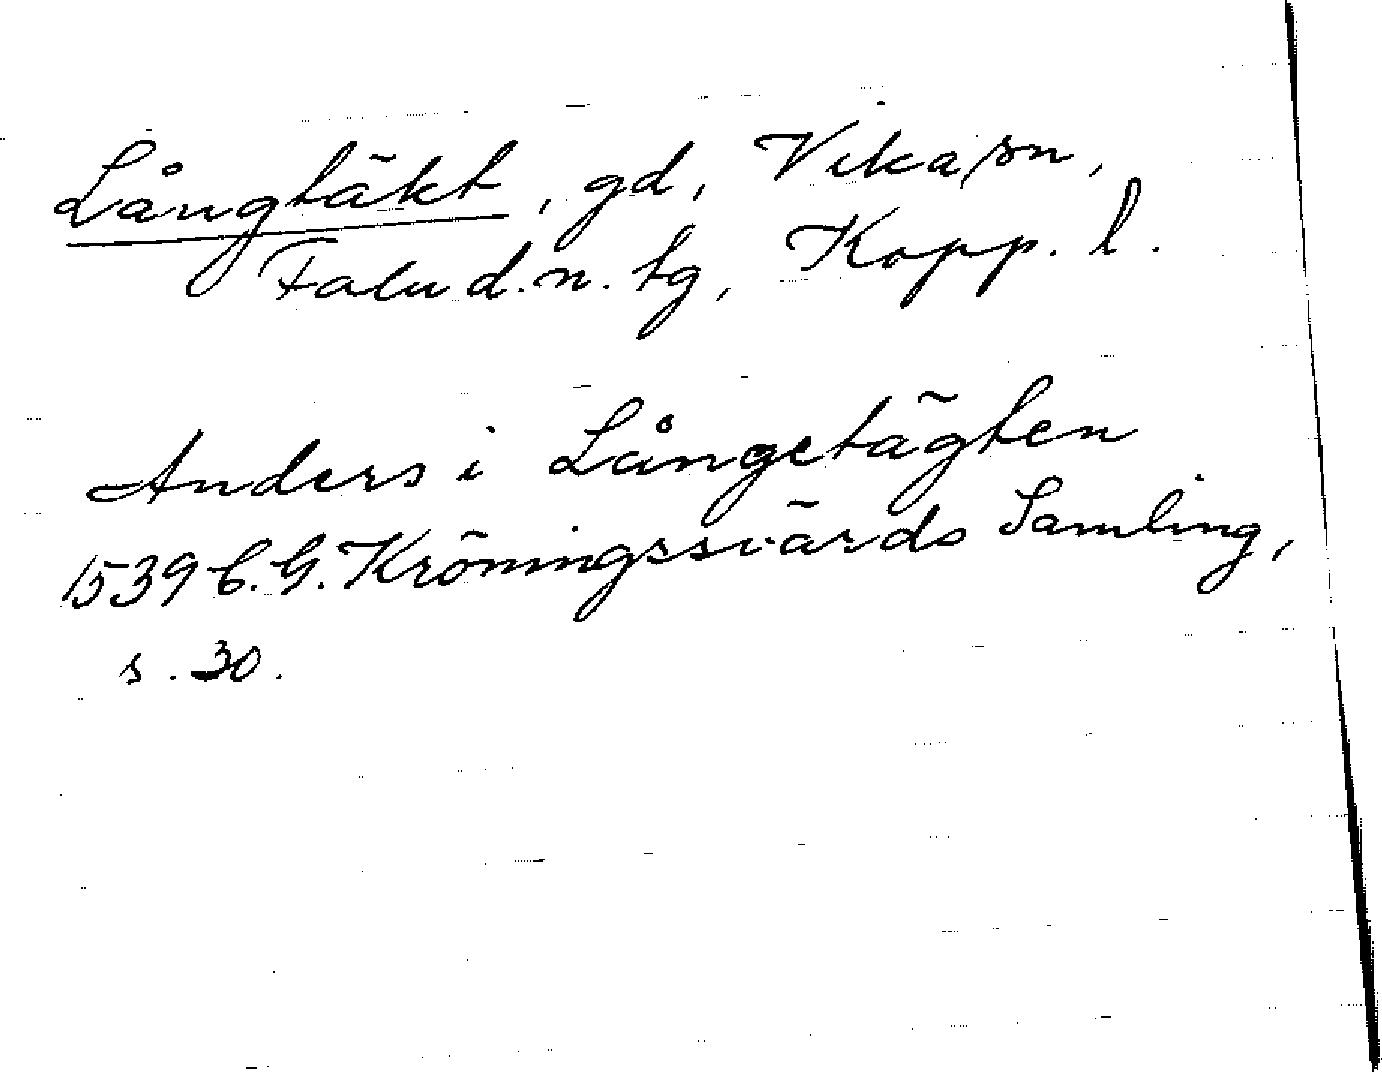 Långtäkt, gd, Vika sn,
Falu d. n. tg, Kopp. l.
Anders i Långetägten
1539 C. G. Kröningssvärds Samling,
s. 30.